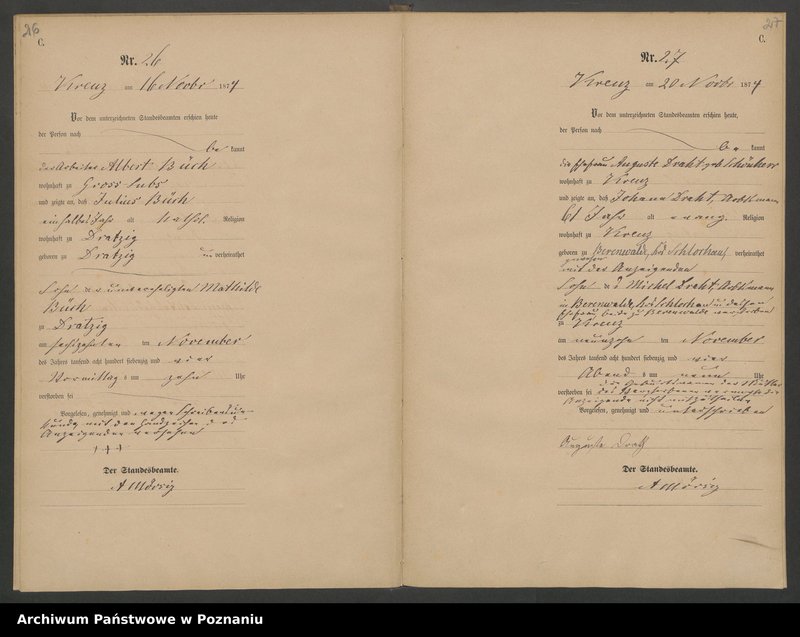 26
C.
Nr. 26
Kreuz am 16 Novbr 1874
Vor dem unterzeichneten Standesbeamten erschien heute
der Person nach
be kannt
der Arbeiter Albert Büch
wohnhaft zu Gross Lubs
und zeigte an, daß Julius Büch
ein halbes Jahr alt kathol. Religion
wohnhaft zu Dratzig
geboren zu Dratzig un verheirathet
Sohn der unverehelichten Mathilde
Büch
zu Dratzig
am sechszehnten ten November
des Jahres tausend acht hundert siebenzig und vier
Vormittag s um zehn Uhr
verstorben sei
Vorgelesen, genehmigt und wegen Schreibensun-
kunde mit den Handzeichen des
Anzeigenden versehen
+++
Der Standesbeamte.
A Mörig
27
C.
Nr. 27
Kreuz am 20 Novbr 1874
Vor dem unterzeichneten Standesbeamten erschien heute
der Person nach
be kannt
die Ehefrau Auguste Draht geb
wohnhaft zu Kreuz
und zeigte an, daß Johann Draht,
61 Jahr alt evang. Religion
wohnhaft zu Kreuz
geboren zu Berenwalde, Krs Schlochau, verheirathet
gewesen
mit der Anzeigenden
Sohn des Michel Draht,
in Berenwalde, Krs Schlochau und dessen
Ehefrau, beide zu Berenwalde verstorben
zu Kreuz
am neunzehn ten November
des Jahres tausend acht hundert siebenzig und vier
Abend s um neun Uhr
verstorben sei
den Geburtsnamen der Mutter
des Verstorbenen vermochte die
Anzeigende nicht mitzutheilen
Vorgelesen, genehmigt und unterschrieben
Auguste
Der Standesbeamte.
A Mörig
Archiwum Państwowe w Poznaniu